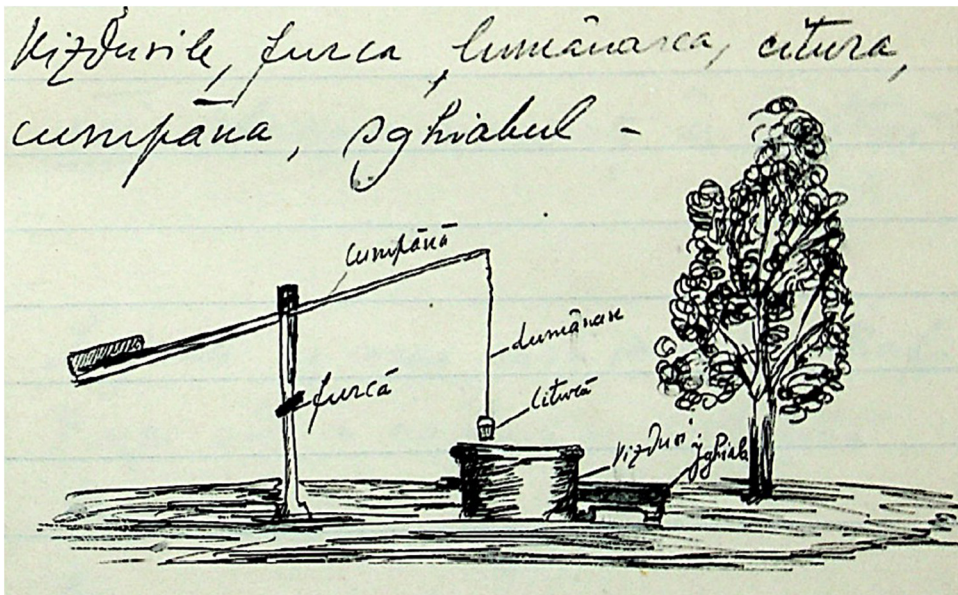 Kizdurile, furca, lumânarea, citura,
cumpăna, sghiabul -
cumpănă
lumânare
furcă
citură
Kizduri
sghiab